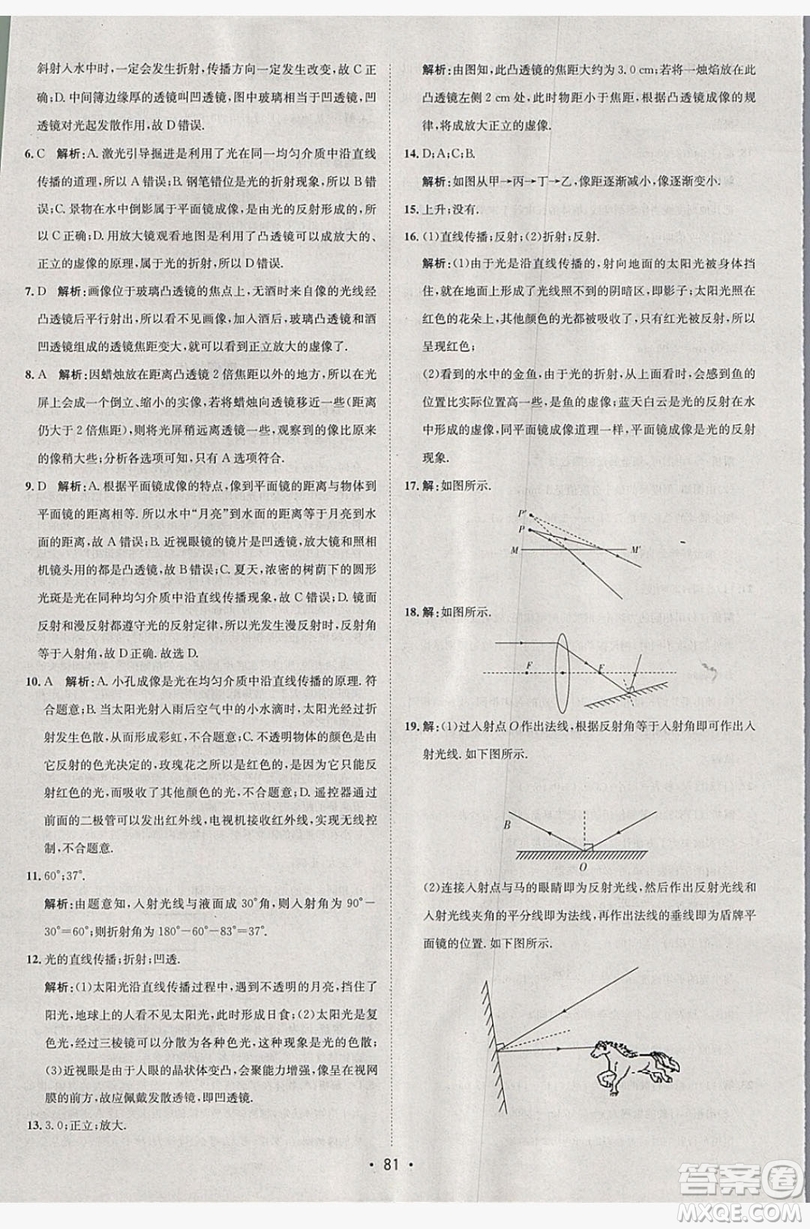 斜射入水中时,一定会发生折射,传播方向一定发生改变,故 C
正确;D. 中间薄边缘厚的透镜叫凹透镜,图中玻璃是凹透镜,凹
透镜对光起发散作用,故 D 错误.
6. C 解析:A. 激光引导掘进是利用了光在同一均匀介质中沿直线
传播的道理,所以 A 错误;B. 钢笔错位是光的折射现象,所以 B 错
误;C. 景物在水中倒影属于平面镜成像,是光的反射,所以 C
正确;D. 用放大镜观看地图是利用了凸透镜可以成放大的、
正立的虚像的原理,属于光的折射,所以 D 错误.
7. D 解析:画像位于玻璃凸透镜的焦点上,无酒时来自像的光线经
凸透镜后平行射出,所以看不见画像,加入酒后,玻璃凸透镜和酒
凹透镜组成的透镜焦距变大,就可以看到正立放大的虚像了.
8. A 解析:因蜡烛放在距离凸透镜 2 倍焦距以外的地方,所以在光
屏上成一个倒立、缩小的实像,若将蜡烛向透镜移近一些(距离
仍大于 2 倍焦距),则将光屏稍远离透镜一些,则所成的实像比原来
的像稍大一些;分析各选项可知,只有 A 选项符合.
9. D 解析:A. 根据平面镜成像的特点,像到平面镜的距离与物体到平
面镜的距离相等. 所以水中“月亮”到水面的距离等于月亮到水
面的距离,故 A 错误;B. 近视眼镜的镜片是凹透镜,放大镜和照相
机镜头用的都是凸透镜,故 B 错误;C. 夏天,浓密的树荫下的圆形
光斑是光在同种均匀介质中沿直线传播现象,故 C 错误;D. 镜面
反射和漫反射都遵守光的反射定律,所以光发生漫反射时,反射角
等于入射角,故 D 正确.故选 D.
10. A 解析:A. 小孔成像是光在均匀介质中沿直线传播的原理. 符
合题意;B. 当太阳光射入雨后空气中的小水滴时,太阳光经过
折射发生色散,形成彩虹,不合题意;C. 不透明物体的颜色是由
它反射的光的颜色决定的,玫瑰花之所以是红色的,是因为它
反射红色的光,而其他颜色的光都被吸收了,不合题意;D. 遥控器通过
前面的二极管可以发出红外线,电视机接收红外线,实现控
制,不合题意.
11. 60°;37°.
解析:由题意知,入射光线与液面成 30°角,入射角为 90°
-30°=60°;则折射角为 180°-60°-83°=37°.
12. 光的直线传播;折射;凹透.
解析:(1)太阳光沿直线传播过程中,遇到不透明的月亮,挡住了
阳光,地球上的人看不见太阳,就形成日食;(2)太阳光属于复
色光,经过三棱镜可以分散为各种色光,这种现象是光的色散;
(3)近视眼是由于人眼的晶状体变凸,会聚能力增强,成像在视网
膜的前方,故应佩戴发散透镜,即凹透镜.
13. 3.0;正立;放大.
解析:由图知,此凸透镜的焦距大约为 3.0 cm;若将一烛焰放在
凸透镜左侧 2 cm 处,此时物距小于焦距,根据凸透镜成像的规
律,将成放大正立的虚像.
14. D;A;C;B.
解析:如图从甲→丙→丁→乙,像距逐渐减小,像逐渐变小.
15. 上升;没有.
16. (1)直线传播;反射;(2)折射;反射.
解析:(1)由于光是沿直线传播的,射向地面的太阳光被身体挡
住,在地面上形成光照不到的阴暗区,即影子;太阳光照在
红色的花朵上,其他颜色的光都被吸收了,只反射红色的光,所以
呈现红色;
(2)看到的水中的金鱼,由于光的折射,感觉到的鱼
的位置比实际位置高一些,是鱼的虚像;蓝天白云是光的反射在水
中形成的虚像,同平面镜成像道理一样,平面镜成像属于反射
现象.
17. 解:如图所示.
P′
P
M M′
18. 解:如图所示.
F F
19. 解:(1)过入射点 O 作出法线,根据反射角等于入射角即可作出入
射光线. 如下图所示.
B
O
(2)连接入射点与马的眼睛即为反射光线,然后作出反射光线与
入射光线夹角的平分线即为法线,再作出法线的垂线即为盾牌平
面镜的位置. 如下图所示.
• 81 •
答案圈
MXQE.COM